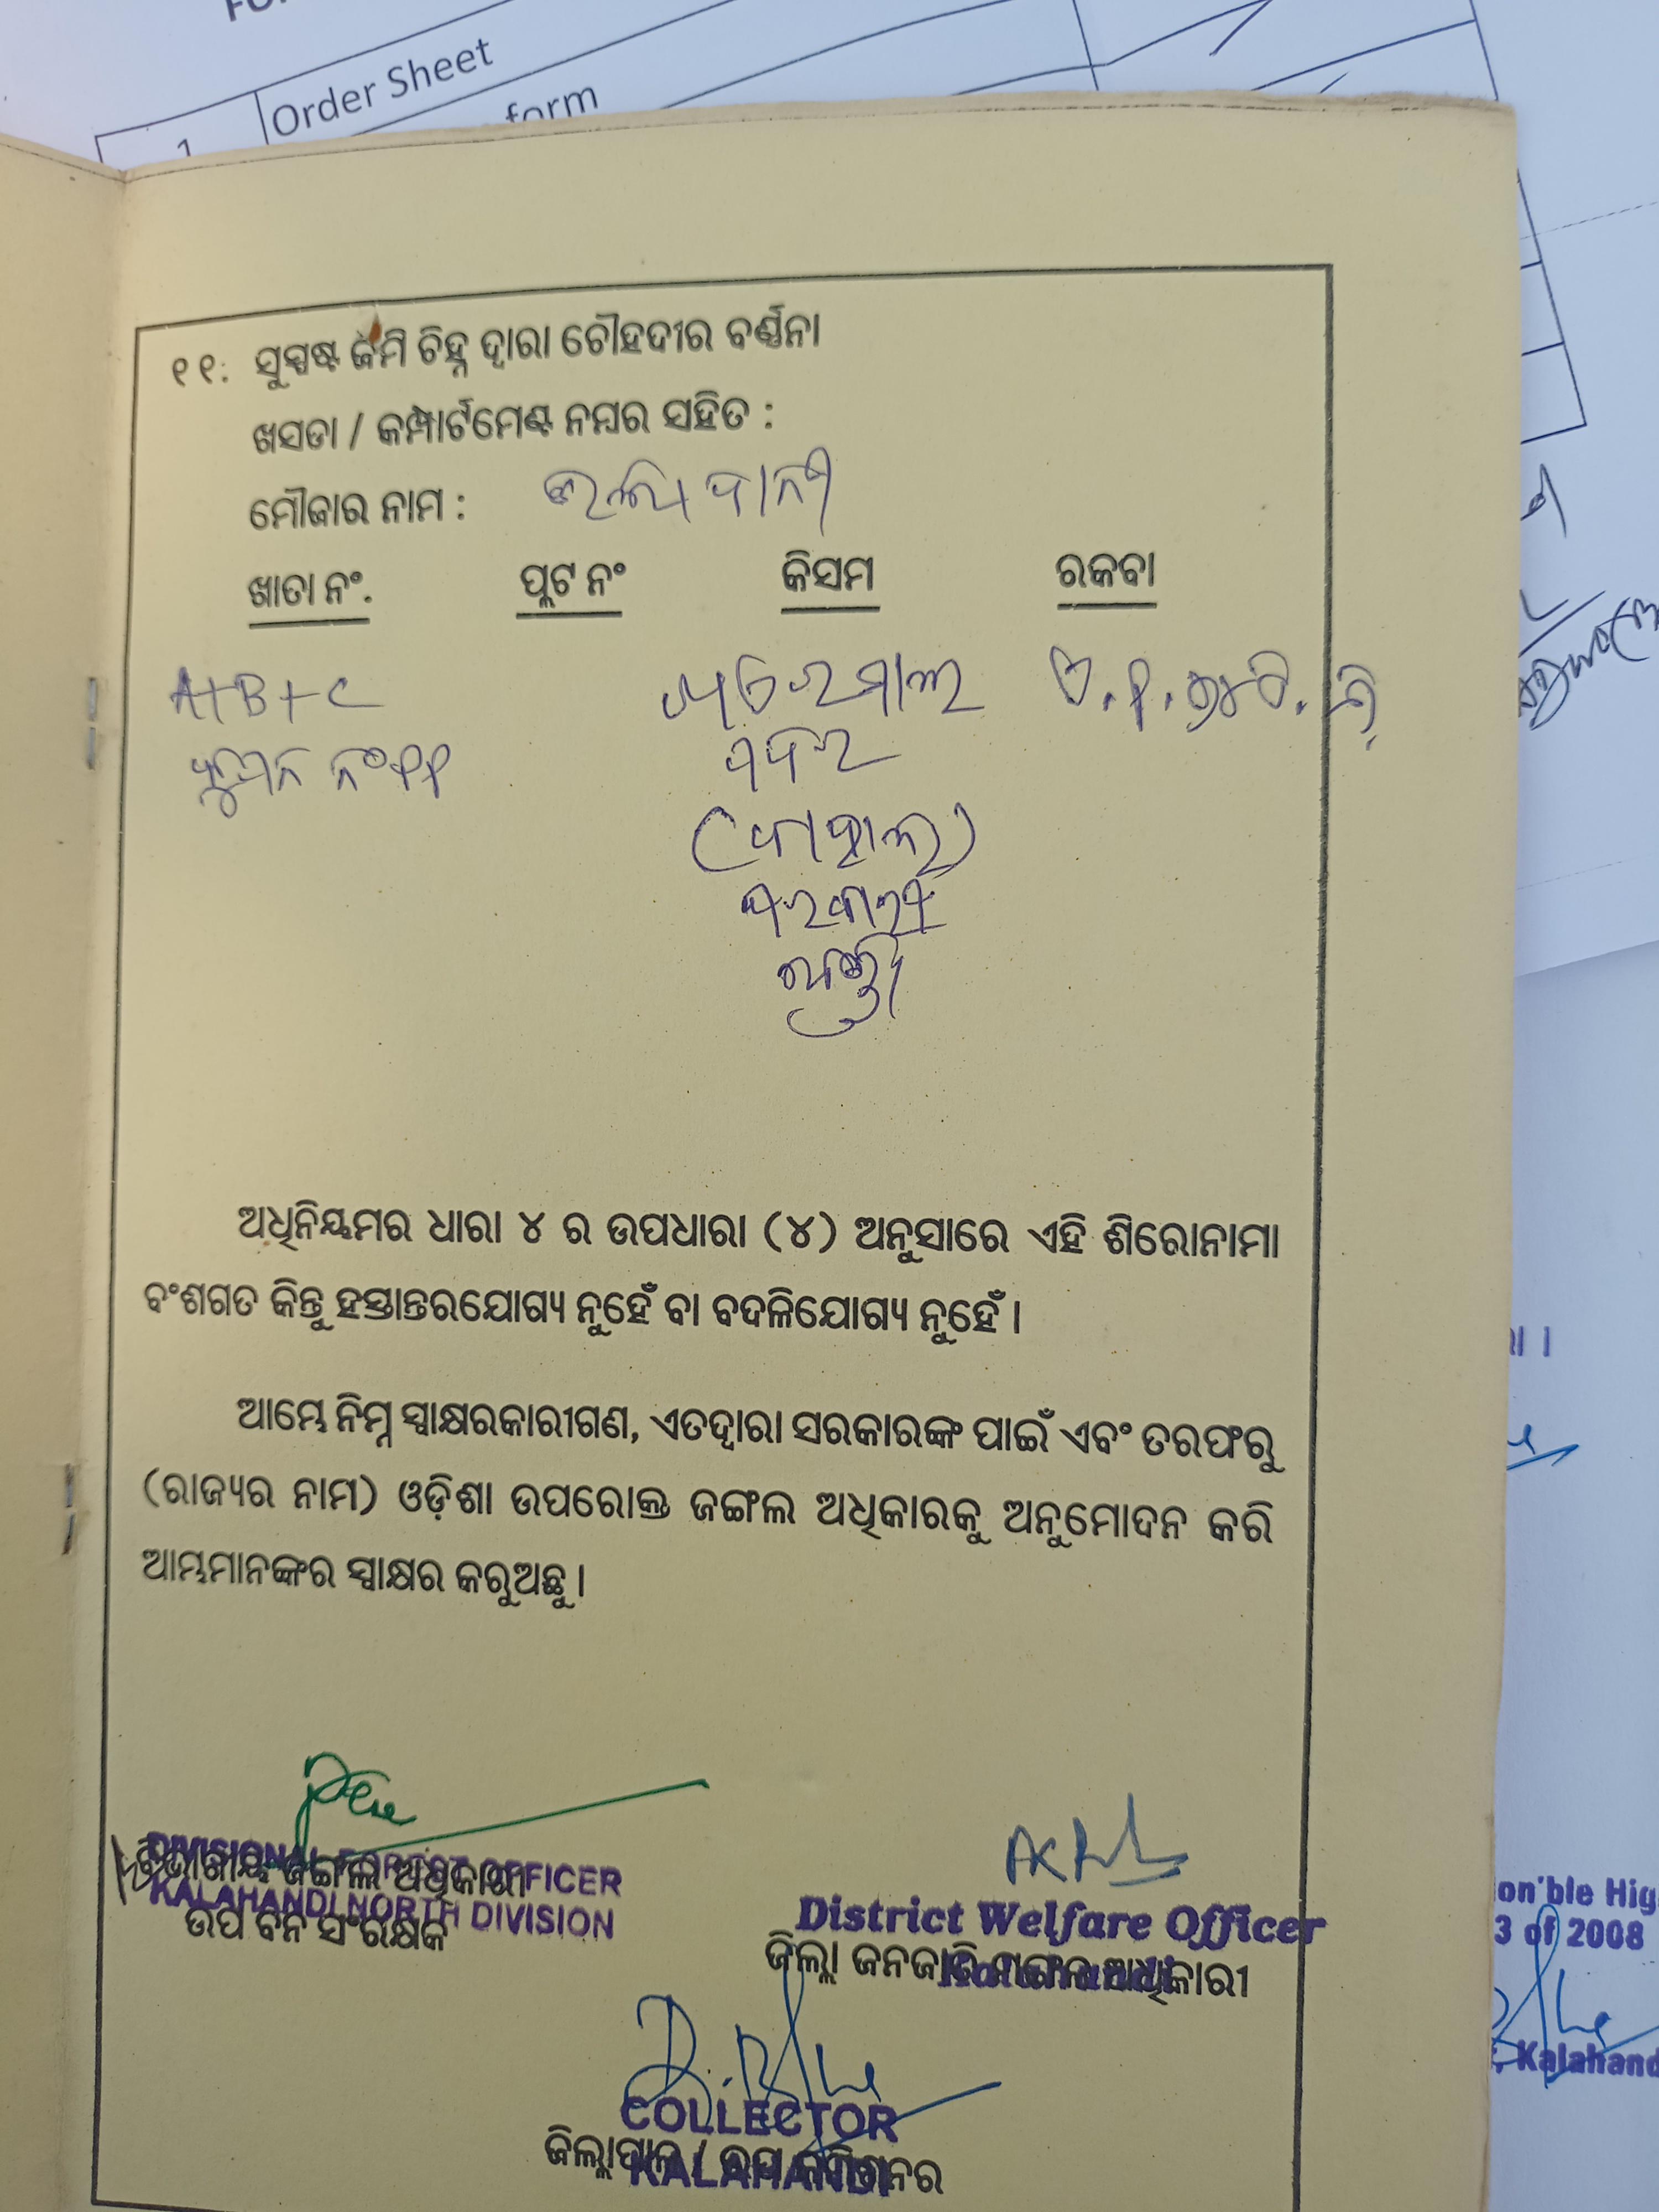 Order Sheet
1
form
୧୧: ସୁସ୍ପଷ୍ଟ ଜମି ଚିହ୍ନ ଦ୍ୱାରା ଚୌହଦୀର ବର୍ଣ୍ଣନା
ଖସଡା / କମ୍ପାର୍ଟମେଣ୍ଟ ନମ୍ବର ସହିତ :
ମୌଜାର ନାମ :
ଖାତା ନଂ. ପ୍ଲଟ ନଂ କିସମ ରକବା
A+B+C
ନଂ ୧୧
ଅଧିନିୟମର ଧାରା ୪ ର ଉପଧାରା (୪) ଅନୁସାରେ ଏହି ଶିରୋନାମା
ବଂଶଗତ କିନ୍ତୁ ହସ୍ତାନ୍ତରଯୋଗ୍ୟ ନୁହେଁ ବା ବଦଳିଯୋଗ୍ୟ ନୁହେଁ ।
ଆମ୍ଭେ ନିମ୍ନ ସ୍ୱାକ୍ଷରକାରୀଗଣ, ଏତଦ୍ୱାରା ସରକାରଙ୍କ ପାଇଁ ଏବଂ ତରଫରୁ
(ରାଜ୍ୟର ନାମ) ଓଡ଼ିଶା ଉପରୋକ୍ତ ଜଙ୍ଗଲ ଅଧିକାରକୁ ଅନୁମୋଦନ କରି
ଆମ୍ଭମାନଙ୍କର ସ୍ୱାକ୍ଷର କରୁଅଛୁ ।
DIVISIONAL FOREST OFFICER
ବିଭାଗୀୟ ଜଙ୍ଗଲ ଅଧିକାରୀ
KALAHANDI NORTH DIVISION
ଉପ ବନ ସଂରକ୍ଷକ
District Welfare Officer
Kalahandi
ଜିଲ୍ଲା ଜନଜାତି ମଙ୍ଗଳ ଅଧିକାରୀ
COLLECTOR
KALAHANDI
ଜିଲ୍ଲାପାଳ / ଉପ କମିଶନର
on'ble Hig
3 of 2008
Kalahand